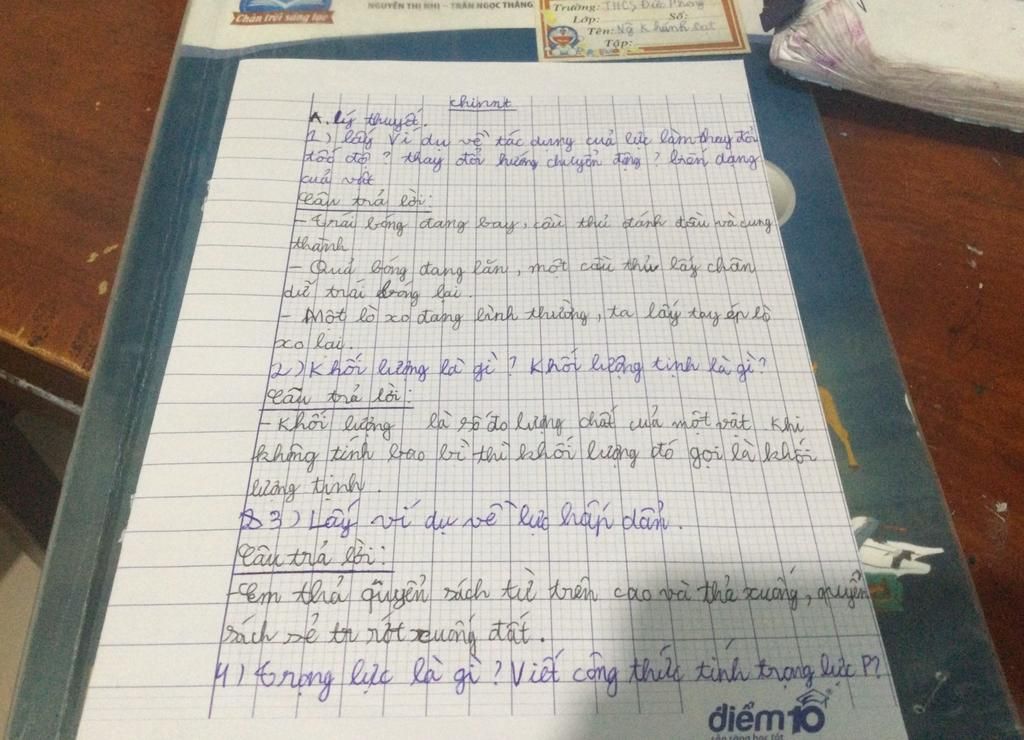 Chân trời sáng tạo
NGUYỄN THỊ NHỊ – TRẦN NGỌC THẮNG
Trường: THCS Đức Phong
Lớp: Số:
Tên: Ng Khánh
Tập:
A. Lý thuyết.
1) lấy Ví dụ về tác dụng cuả lực làm thay đổi
tốc độ? thay đổi hướng chuyển động? biến dạng
cuả vật
Câu trả lời:
- Trái bóng đang bay, cầu thủ đánh đầu và cung
thành
- Quả bóng đang lăn, một cầu thủ lấy chân
dữ trái bóng lại.
- Một lò xo đang bình thường, ta lấy tay ép lò
xo lại.
2) Khối lượng là gì? Khối lượng tịnh là gì?
Câu trả lời:
- Khối lượng là số đo lượng chất cuả một vật. Khi
không tính bao bì thì khối lượng đó gọi là khối
lượng tịnh.
3) Lấy ví dụ về lực hấp dẫn.
Câu trả lời:
- Em thả quyển sách từ trên cao và thả xuống, quyển
sách sẻ rớt xuống đất.
4) trọng lực là gì? Viết công thức tính trọng lực P?
điểm 10